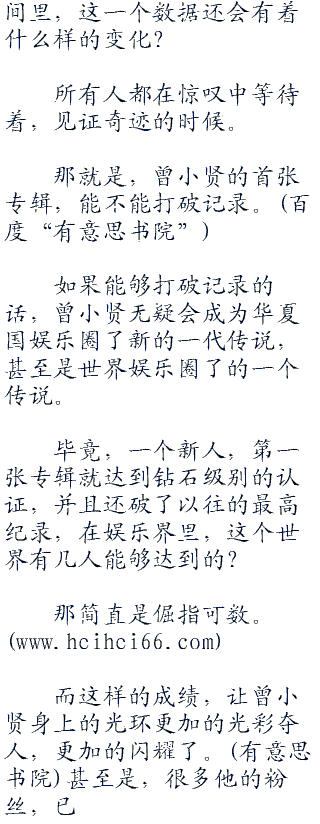 间里，这一个数据还会有着
什么样的变化？
所有人都在惊叹中等待
着，见证奇迹的时候。
那就是，曾小贤的首张
专辑，能不能打破记录。(百
度“有意思书院”)
如果能够打破记录的
话，曾小贤无疑会成为华夏
国娱乐圈了新的一代传说，
甚至是世界娱乐圈了的一个
传说。
毕竟，一个新人，第一
张专辑就达到钻石级别的认
证，并且还破了以往的最高
纪录，在娱乐界里，这个世
界有几人能够达到的？
那简直是倔指可数。
(www.hcihci66.com)
而这样的成绩，让曾小
贤身上的光环更加的光彩夺
人，更加的闪耀了。(有意思
书院)甚至是，很多他的粉
丝，已